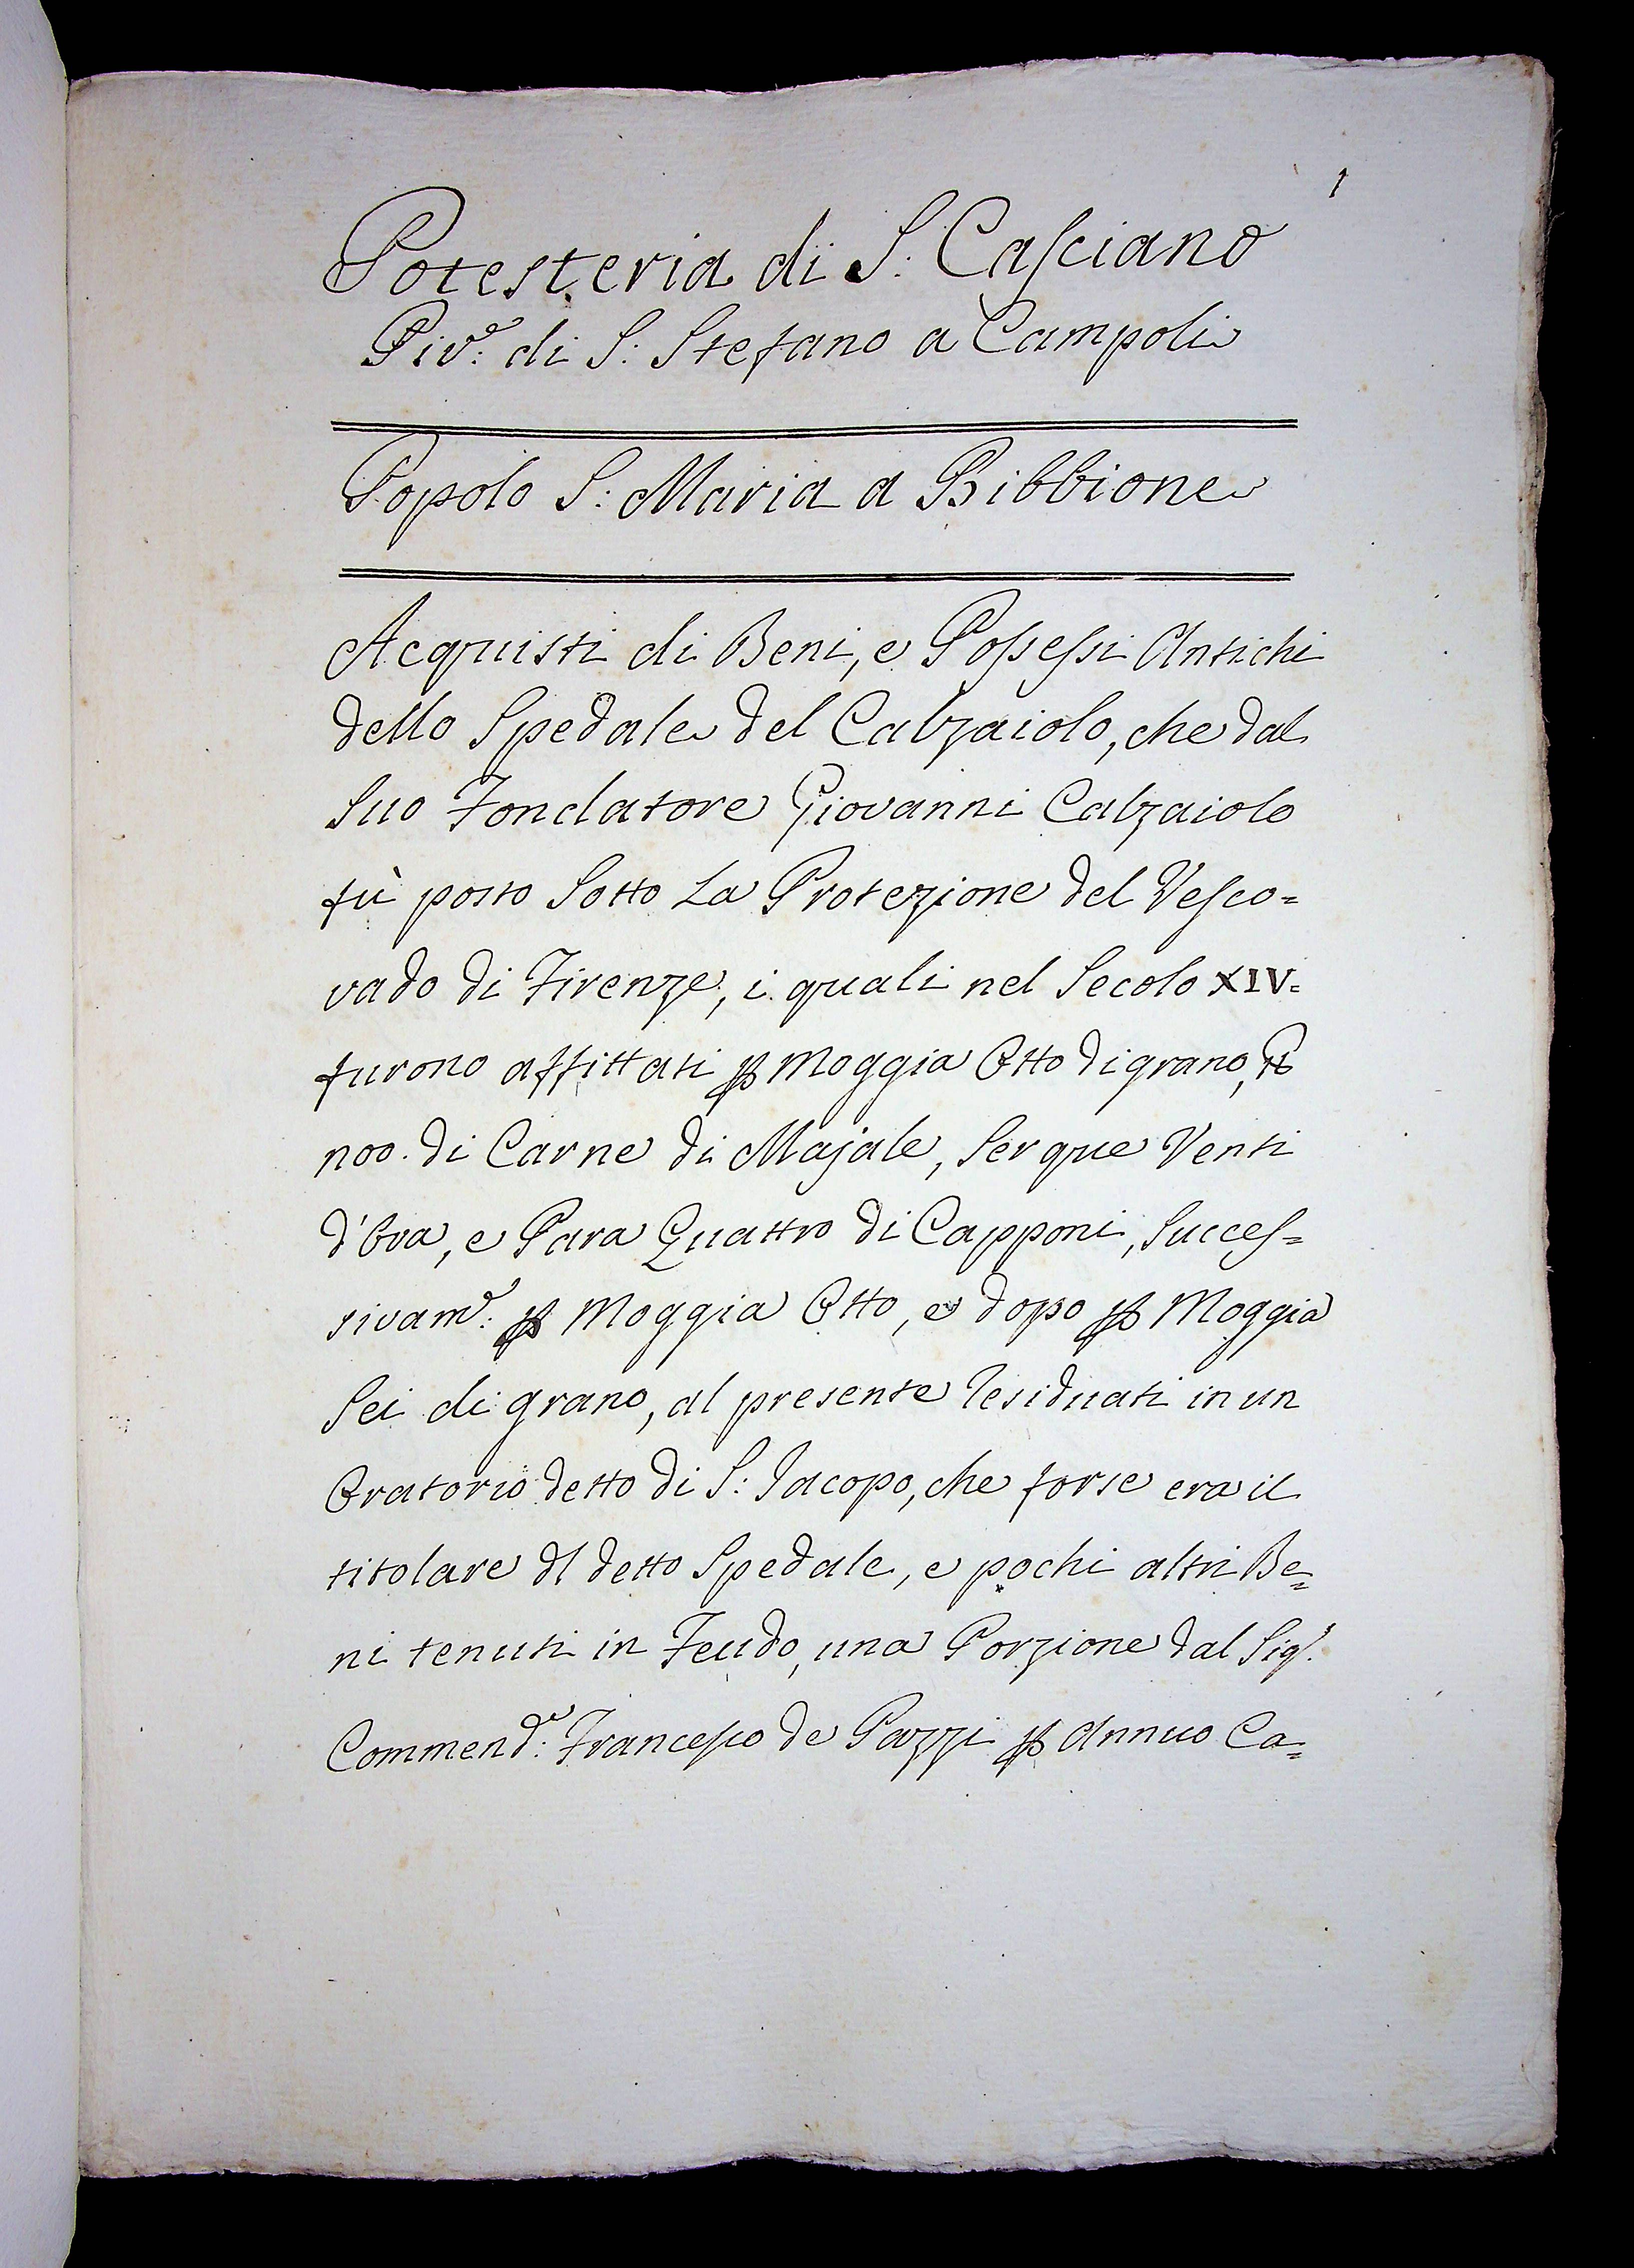 1
Potesteria di S: Casciano
Piv.e di S: Stefano a Campoli
Popolo S: Maria a Bibbione
Acquisti di Beni, e Possessi Antichi
dello Spedale del Calzaiolo, che dal
Suo Fondatore Giovanni Calzaiolo
fù posto Sotto La Protezione del Vesco=
vado di Firenze, i quali nel Secolo XIV.
furono affittati ꝑ Moggia Otto di grano,
di Carne di Majale, Serque Venti
d'Ova, e Para Quattro di Capponi, Succes=
sivam.e ꝑ Moggia Otto, e dopo ꝑ Moggia
Sei di grano, al presente residuati in un
Oratorio detto di S: Jacopo, che forse era il
titolare dl detto Spedale, e pochi altri Be=
ni tenuti in Feudo, una Porzione dal Sig.r
Commend.e Francesco de Pazzi ꝑ Annuo Ca=